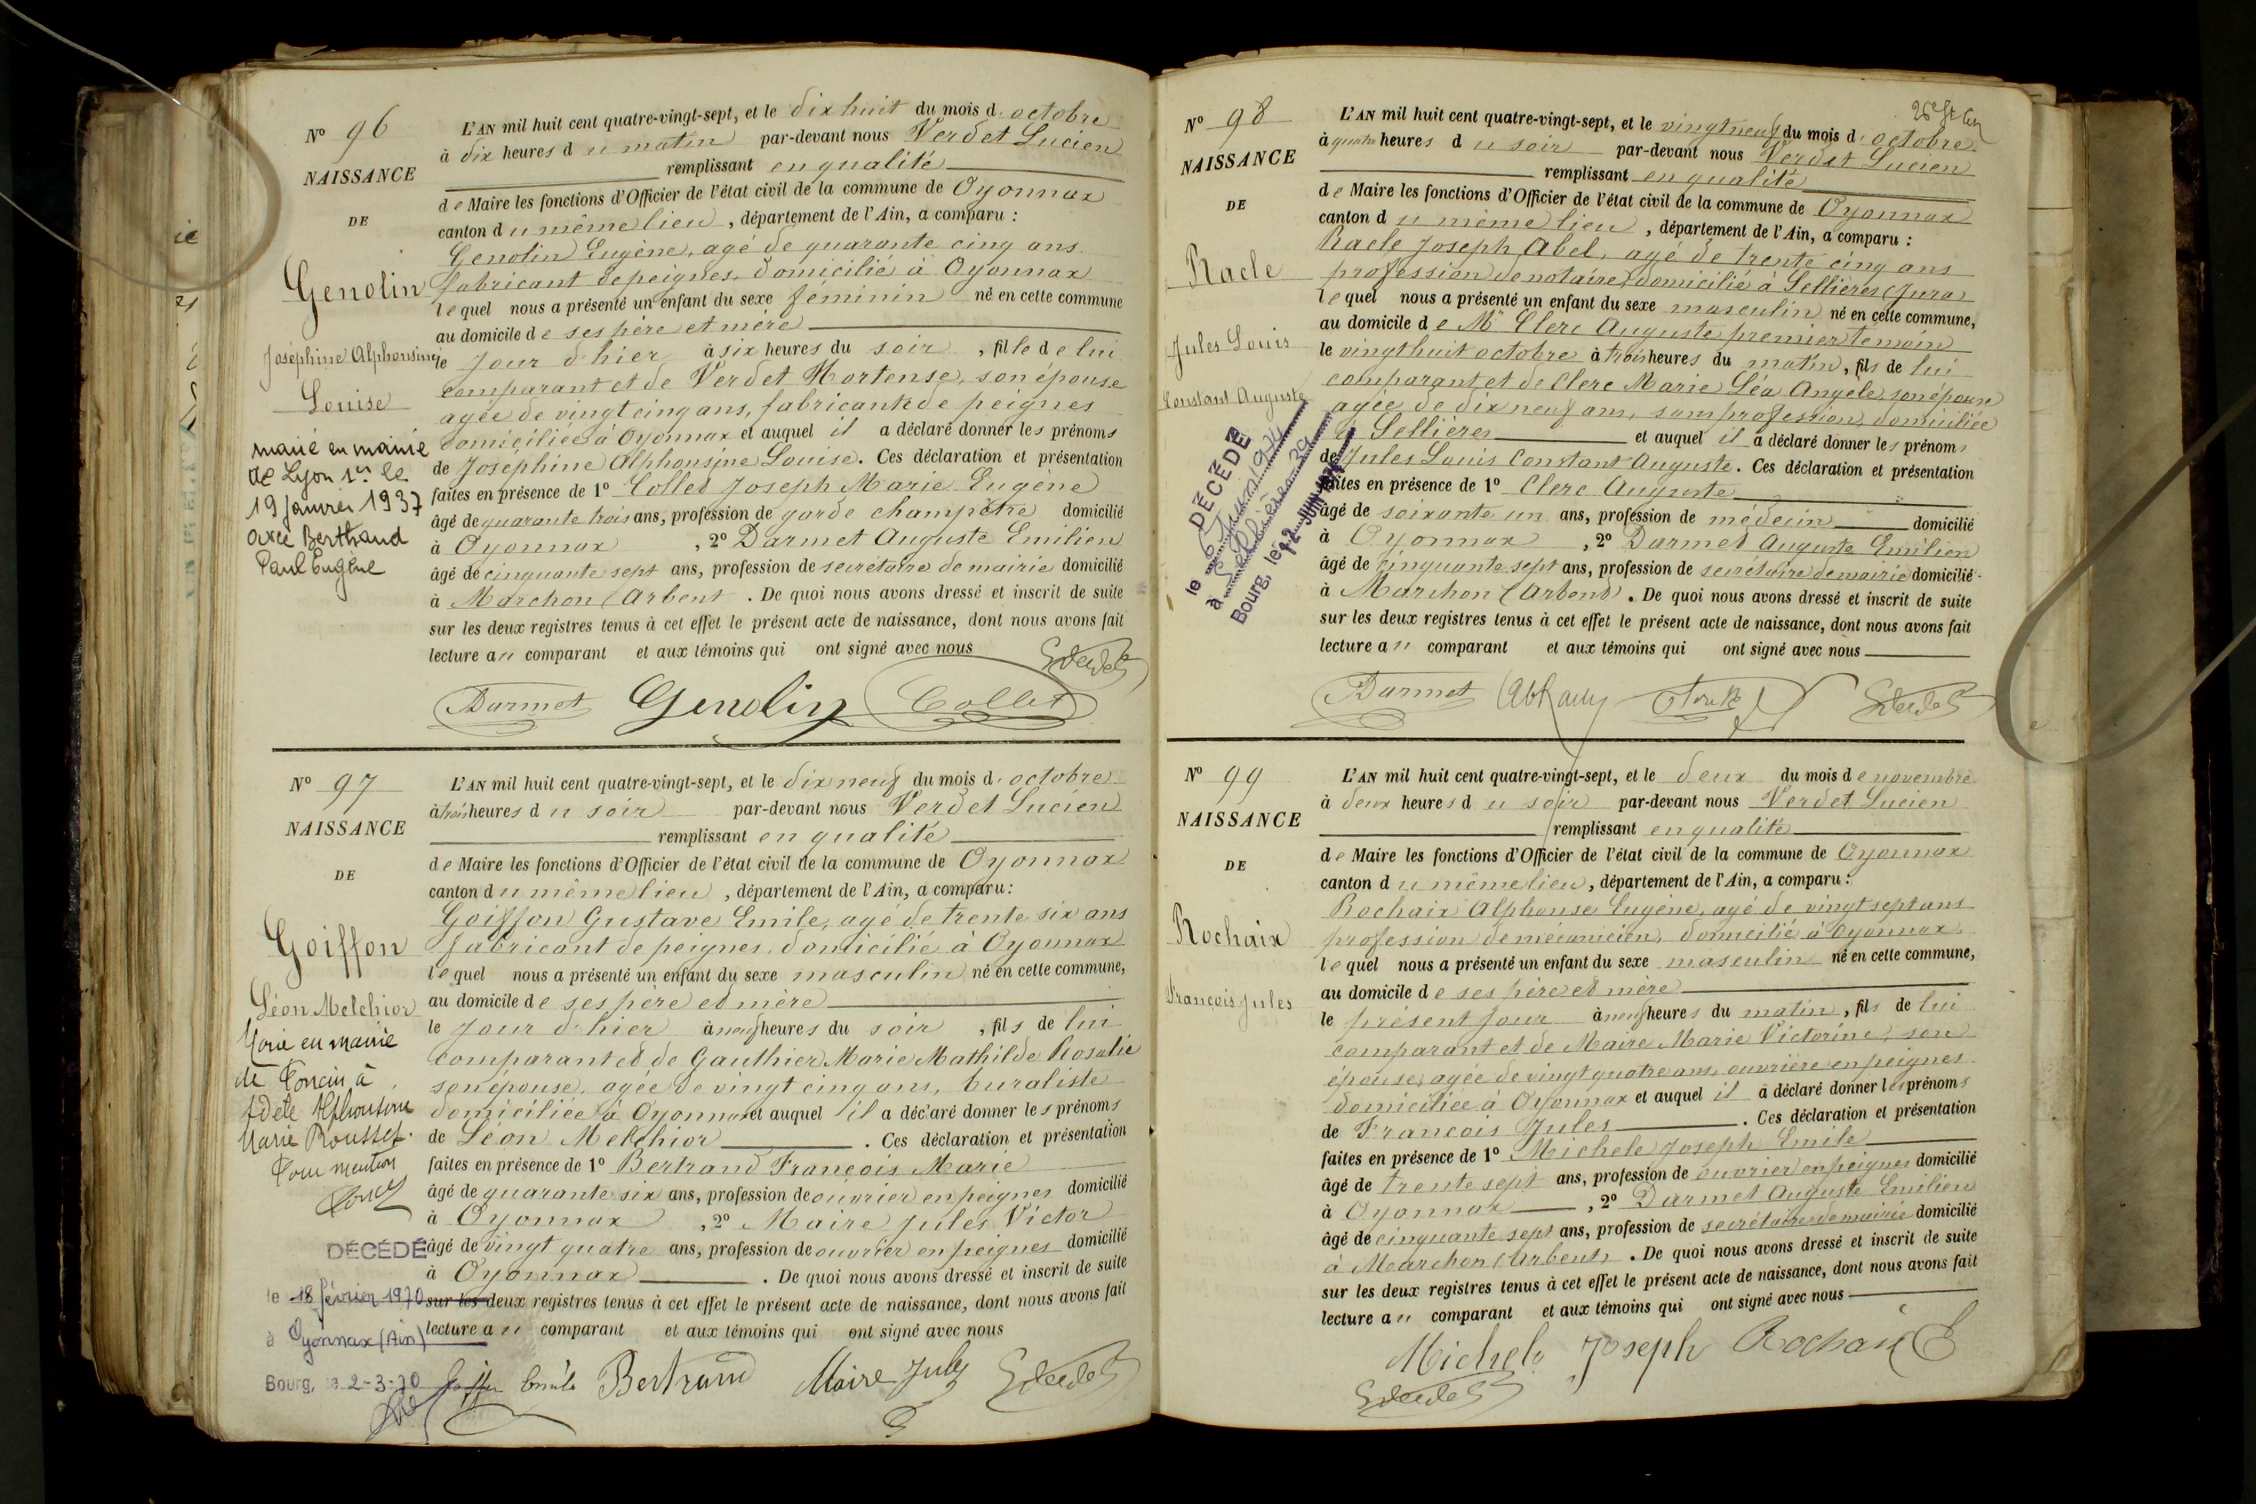 N° 96
NAISSANCE
DE
Genolin
Joséphine Alphonsine
Louise
marié en mairie
de Lyon 1er le
19 janvier 1937
avec Bertrand
Paul Eugène
L'AN mil huit cent quatre-vingt-sept, et le dix huit du mois d'octobre
à dix heures du matin par-devant nous Verdet Lucien
remplissant en qualité
de Maire les fonctions d'Officier de l'état civil de la commune de Oyonnax
canton du même lieu, département de l'Ain, a comparu :
Genolin Eugène, agé de quarante cinq ans
fabricant de peignes, domicilié à Oyonnax
lequel nous a présenté un enfant du sexe féminin né en cette commune
au domicile de ses père et mère
le jour d'hier à six heures du soir, fille de lui
comparant et de Verdet Hortense, son épouse
agée de vingt cinq ans, fabricante de peignes
domiciliée à Oyonnax et auquel il a déclaré donner les prénoms
de Joséphine Alphonsine Louise. Ces déclaration et présentation
faites en présence de 1° Collet Joseph Marie Eugène
âgé de quarante trois ans, profession de garde champêtre domicilié
à Oyonnax, 2° Darmet Auguste Emilien
âgé de cinquante sept ans, profession de secrétaire de mairie domicilié
à Marchon (Arbent. De quoi nous avons dressé et inscrit de suite
sur les deux registres tenus à cet effet le présent acte de naissance, dont nous avons fait
lecture au comparant et aux témoins qui ont signé avec nous
Darmet Genolin Collet
N° 97
NAISSANCE
DE
Goiffon
Léon Melchior
Marié en mairie
de Poncin à
Adèle Alphonsine
Marie Rousset.
Pour mention
DÉCÉDÉ
le 18 février 1970
à Oyonnax (Ain)
Bourg, le 2-3-70
L'AN mil huit cent quatre-vingt-sept, et le dix neuf du mois d'octobre
à trois heures du soir par-devant nous Verdet Lucien
remplissant en qualité
de Maire les fonctions d'Officier de l'état civil de la commune de Oyonnax
canton du même lieu, département de l'Ain, a comparu :
Goiffon Gustave Emile, agé de trente six ans
fabricant de peignes, domicilié à Oyonnax
lequel nous a présenté un enfant du sexe masculin né en cette commune,
au domicile de ses père et mère
le jour d'hier à neuf heures du soir, fils de lui
comparant et de Gauthier Marie Mathilde Rosalie
son épouse, agée de vingt cinq ans, buraliste
domiciliée à Oyonnax et auquel il a déclaré donner les prénoms
de Léon Melchior. Ces déclaration et présentation
faites en présence de 1° Bertrand François Marie
âgé de quarante six ans, profession de ouvrier en peignes domicilié
à Oyonnax, 2° Maire Jules Victor
âgé de vingt quatre ans, profession de ouvrier en peignes domicilié
à Oyonnax. De quoi nous avons dressé et inscrit de suite
sur les deux registres tenus à cet effet le présent acte de naissance, dont nous avons fait
lecture au comparant et aux témoins qui ont signé avec nous
Bertrand Maire Jules
N° 98
NAISSANCE
DE
Racle
Jules Louis
Constant Auguste
DÉCÉDÉ
le 6 Juin 1974
à
Bourg, le 12 JUIN 1974
L'AN mil huit cent quatre-vingt-sept, et le vingt neuf du mois d'octobre
à quatre heures du soir par-devant nous Verdet Lucien
remplissant en qualité
de Maire les fonctions d'Officier de l'état civil de la commune de Oyonnax
canton du même lieu, département de l'Ain, a comparu :
Racle Joseph Abel, agé de trente cinq ans
profession de notaire, domicilié à Sellières (Jura)
lequel nous a présenté un enfant du sexe masculin né en cette commune,
au domicile de Mr Clerc Auguste premier témoin
le vingt huit octobre à trois heures du matin, fils de lui
comparant et de Clerc Marie Léa Angèle, son épouse
agée de dix neuf ans, sans profession, domiciliée
à Sellières et auquel il a déclaré donner les prénoms
de Jules Louis Constant Auguste. Ces déclaration et présentation
faites en présence de 1° Clerc Auguste
âgé de soixante un ans, profession de médecin domicilié
à Oyonnax, 2° Darmet Auguste Emilien
âgé de cinquante sept ans, profession de secrétaire de mairie domicilié
à Marchon (Arbent). De quoi nous avons dressé et inscrit de suite
sur les deux registres tenus à cet effet le présent acte de naissance, dont nous avons fait
lecture au comparant et aux témoins qui ont signé avec nous
Darmet
N° 99
NAISSANCE
DE
Rochaix
François Jules
L'AN mil huit cent quatre-vingt-sept, et le deux du mois de novembre
à deux heures du soir par-devant nous Verdet Lucien
remplissant en qualité
de Maire les fonctions d'Officier de l'état civil de la commune de Oyonnax
canton du même lieu, département de l'Ain, a comparu :
Rochaix Alphonse Eugène, agé de vingt sept ans
profession de mécanicien, domicilié à Oyonnax,
lequel nous a présenté un enfant du sexe masculin né en cette commune,
au domicile de ses père et mère
le présent jour à neuf heures du matin, fils de lui
comparant et de Maire Marie Victorine, son
épouse, agée de vingt quatre ans, ouvrière en peignes
domiciliée à Oyonnax et auquel il a déclaré donner les prénoms
de François Jules. Ces déclaration et présentation
faites en présence de 1° Michele Joseph Emile
âgé de trente sept ans, profession de ouvrier en peignes domicilié
à Oyonnax, 2° Darmet Auguste Emilien
âgé de cinquante sept ans, profession de secrétaire de mairie domicilié
à Marchon (Arbent). De quoi nous avons dressé et inscrit de suite
sur les deux registres tenus à cet effet le présent acte de naissance, dont nous avons fait
lecture au comparant et aux témoins qui ont signé avec nous
Michele Joseph Rochaix E